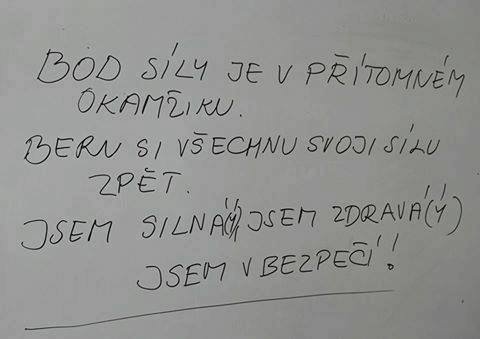 BOD SÍLY JE V PŘÍTOMNÉM
OKAMŽIKU.
BERU SI VŠECHNU SVOJI SÍLU
ZPĚT.
JSEM SILNÁ(Ý), JSEM ZDRAVÁ(Ý)
JSEM V BEZPEČÍ!